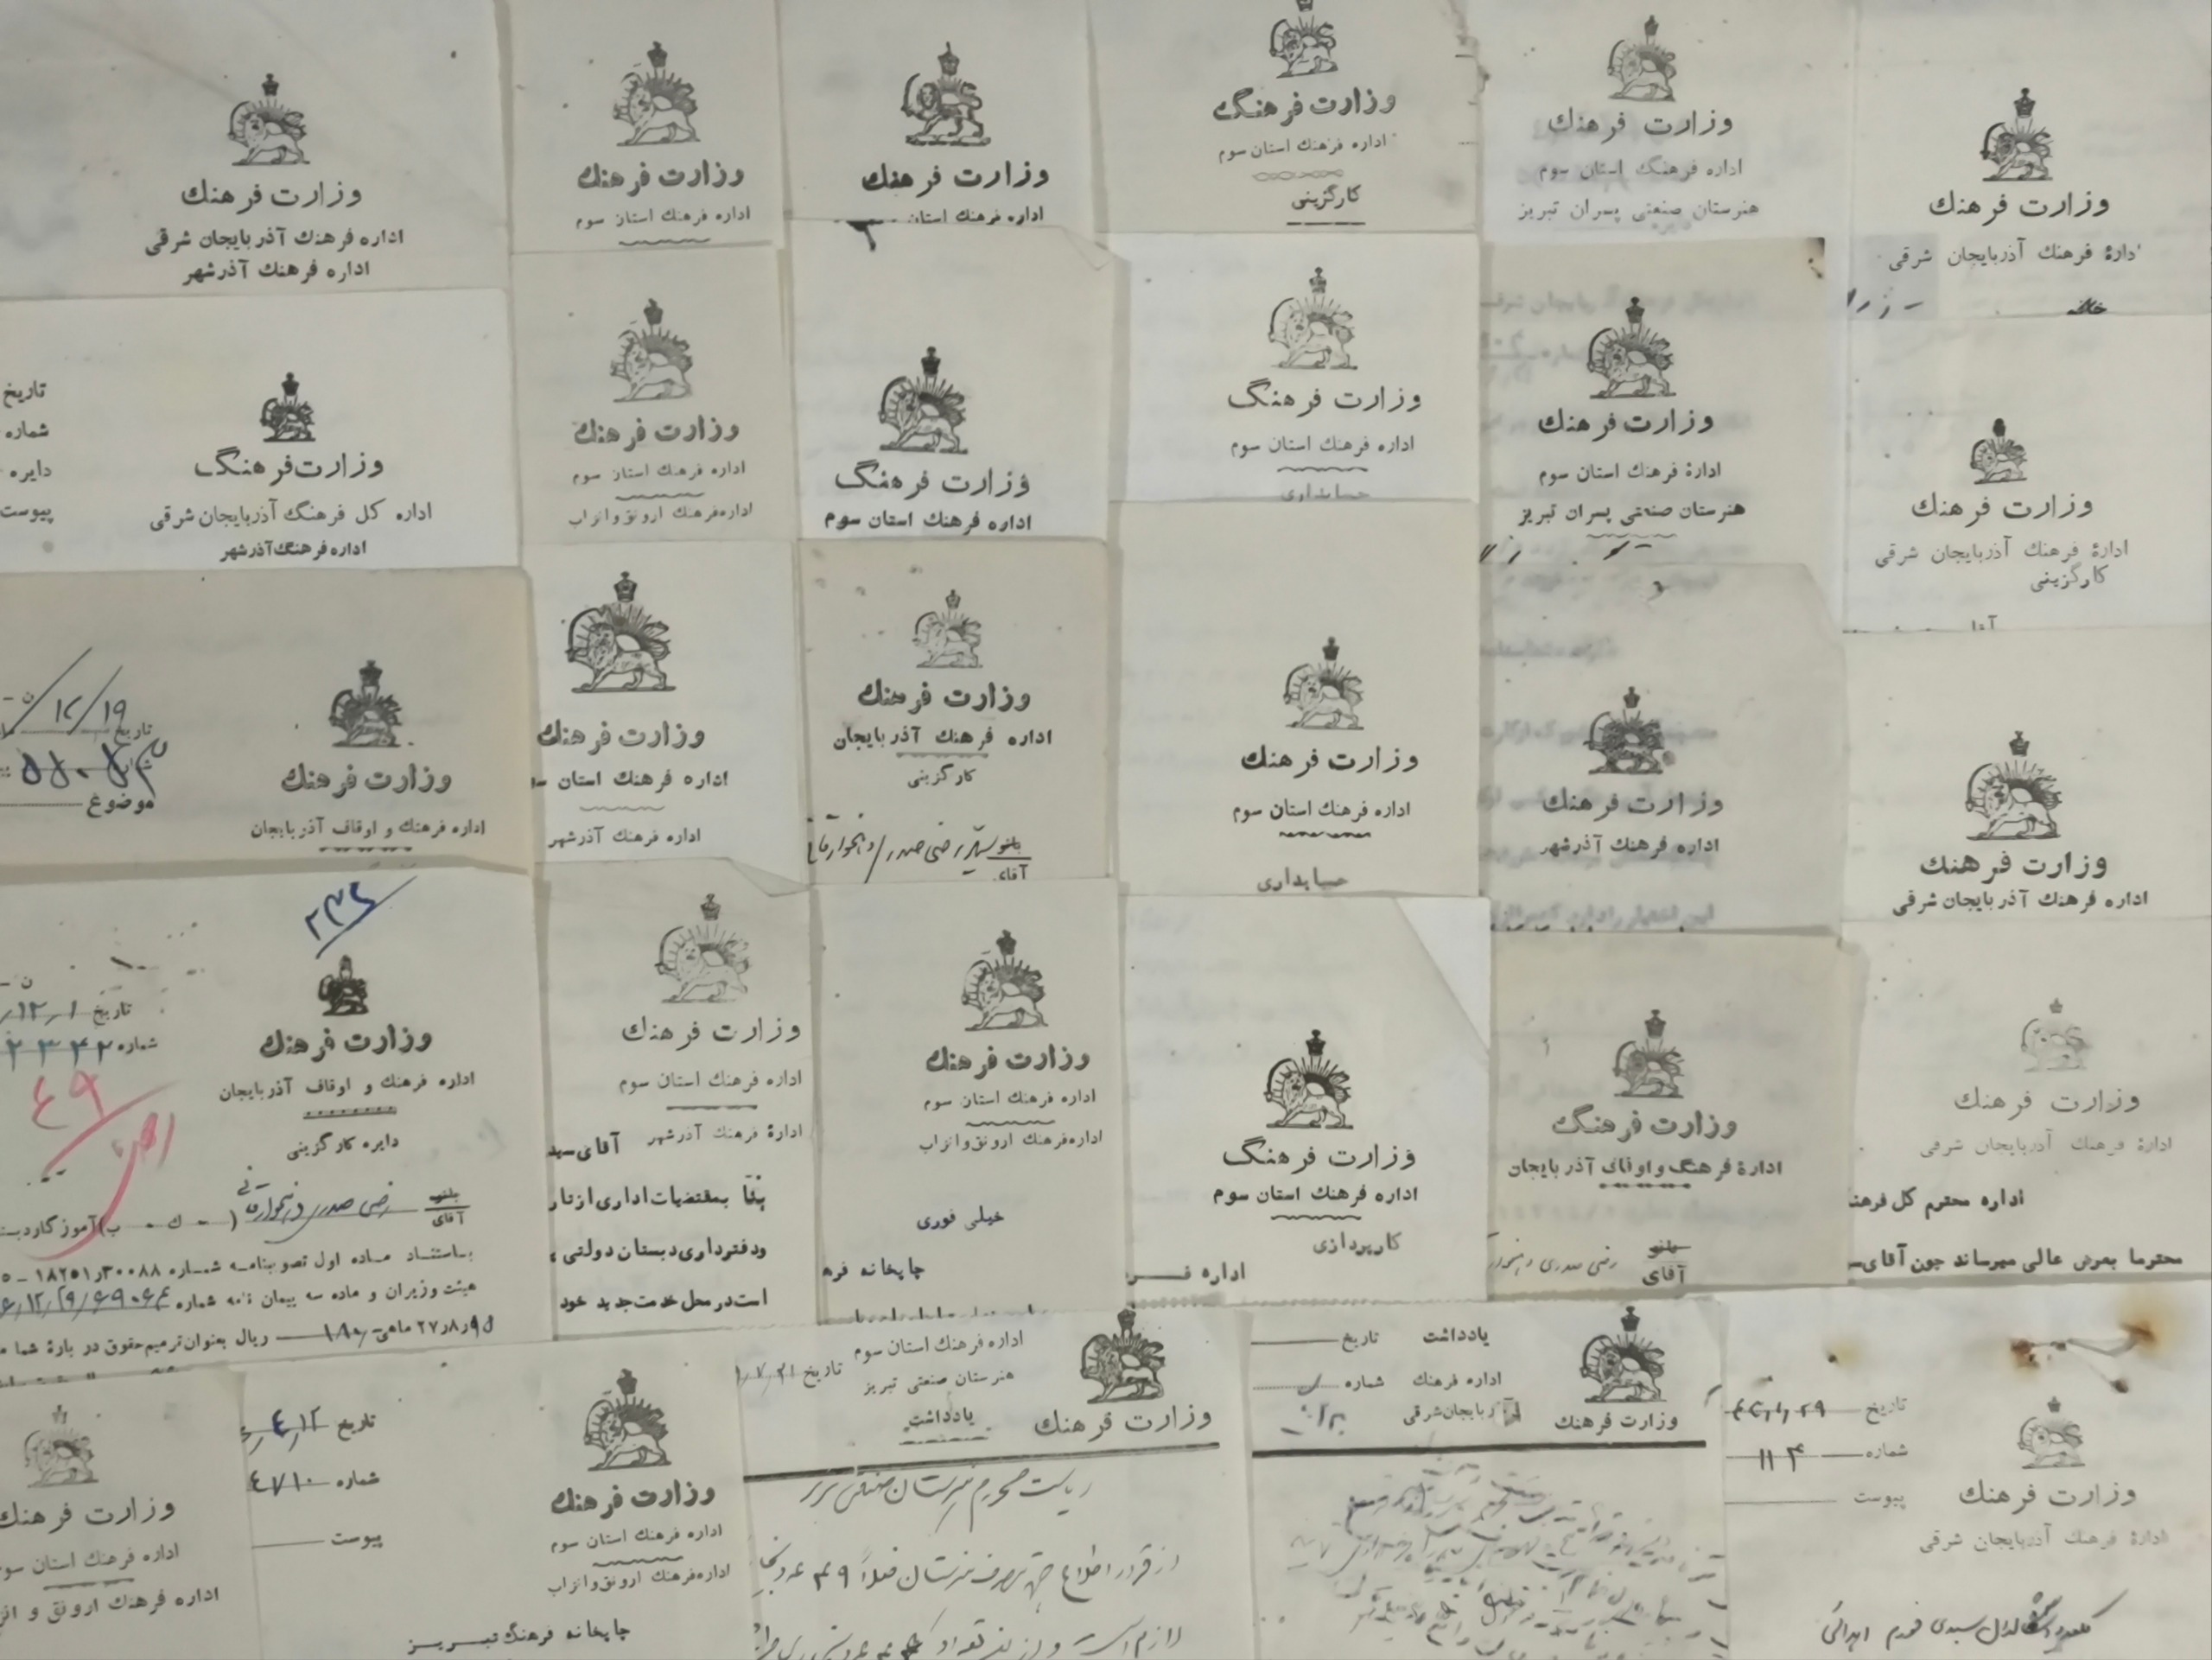 وزارت فرهنك
اداره فرهنك آذربایجان شرقی
اداره فرهنك آذرشهر
وزارت فرهنك
اداره فرهنك استان سوم
وزارت فرهنك
اداره فرهنك استان
وزارت فرهنگ
اداره فرهنك استان سوم
کارگزینی
وزارت فرهنك
اداره فرهنگ استان سوم
هنرستان صنعتی پسران تبریز
وزارت فرهنك
دارهٔ فرهنك آذربایجان شرقی
تاریخ
شماره
دایره
پیوست
وزارت فرهنگ
اداره کل فرهنگ آذربایجان شرقی
اداره فرهنگ آذرشهر
وزارت فرهنك
اداره فرهنك استان سوم
اداره فرهنك ارونق و انزاب
وزارت فرهنگ
اداره فرهنك استان سوم
وزارت فرهنگ
اداره فرهنك استان سوم
حسابداری
وزارت فرهنك
ادارهٔ فرهنك استان سوم
هنرستان صنعتی پسران تبریز
وزارت فرهنك
ادارهٔ فرهنك آذربایجان شرقی
کارگزینی
تاریخ ۱۲/۱۹
موضوع
وزارت فرهنك
اداره فرهنك و اوقاف آذربایجان
وزارت فرهنك
اداره فرهنك استان سو
اداره فرهنك آذرشهر
وزارت فرهنك
اداره فرهنك آذربایجان
کارگزینی
بانو
آقای
وزارت فرهنك
اداره فرهنك استان سوم
حسابداری
وزارت فرهنك
اداره فرهنك آذرشهر
وزارت فرهنك
اداره فرهنك آذربایجان شرقی
۲۳۲
تاریخ ۱۲٫۱
شماره ۲۳۴۲
۴۹
وزارت فرهنك
اداره فرهنك و اوقاف آذربایجان
دایره کارگزینی
بانو
آقای رضی صدر
آموزگار دبستا
باستناد ماده اول تصویبنامه شماره ۱۸۲۵۱٫۳۰۰۸۸
هیئت وزیران و ماده سه پیمان نامه شماره
۲۷٫۸٫۹۵ ماهی ۱۸۰ ریال بعنوان ترمیم حقوق در بارهٔ شما
وزارت فرهنك
اداره فرهنك استان سوم
ادارهٔ فرهنك آذرشهر
آقای سید
بنا بمقتضیات اداری از تار
ودفترداری دبستان دولتی
است در محل خدمت جدید خود
وزارت فرهنك
اداره فرهنك استان سوم
اداره فرهنك ارونق و انزاب
خیلی فوری
چاپخانه فره
وزارت فرهنگ
اداره فرهنك استان سوم
کارپردازی
اداره فـ
وزارت فرهنگ
ادارهٔ فرهنگ و اوقاف آذربایجان
بانو
آقای
وزارت فرهنك
ادارهٔ فرهنك آذربایجان شرقی
اداره محترم کل فرهنـ
محترما بعرض عالی میرساند چون آقای
وزارت فرهنك
اداره فرهنك استان سو
اداره فرهنك ارونق و انز
تاریخ ۴٫۱۲
شماره ۴۷۱۰
پیوست
وزارت فرهنك
اداره فرهنك استان سوم
اداره فرهنك ارونق و انزاب
چاپخانه فرهنگ تبریز
اداره فرهنك استان سوم
هنرستان صنعتی تبریز
یادداشت
تاریخ ۱٫۷٫۲۱
وزارت فرهنك
ریاست محترم هنرستان صنعتی
یادداشت
تاریخ
اداره فرهنك
شماره
آذربایجان شرقی
وزارت فرهنك
تاریخ
شماره ۱۱۴
پیوست
وزارت فرهنك
ادارهٔ فرهنك آذربایجان شرقی